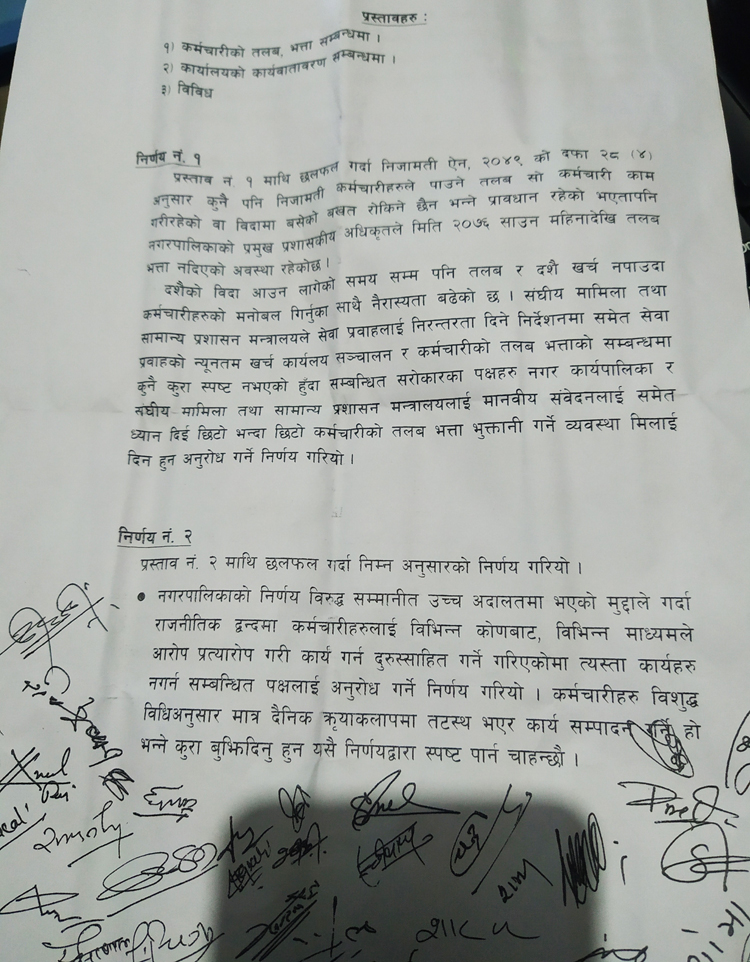 प्रस्तावहरु :
१) कर्मचारीको तलब, भत्ता सम्बन्धमा ।
२) कार्यालयको कार्यवातावरण सम्बन्धमा ।
३) विविध
निर्णय नं. १
प्रस्ताव नं. १ माथि छलफल गर्दा निजामती ऐन, २०४९ को दफा २८ (४)
अनुसार कुनै पनि निजामती कर्मचारीहरुले पाउने तलब सो कर्मचारी काम
गरीरहेको वा विदामा बसेको बखत रोकिने छैन भन्ने प्रावधान रहेको भएतापनि
नगरपालिकाको प्रमुख प्रशासकीय अधिकृतले मिति २०७६ साउन महिनादेखि तलब
भत्ता नदिएको अवस्था रहेकोछ ।
दशैको विदा आउन लागेको समय सम्म पनि तलब र दशै खर्च नपाउदा
कर्मचारीहरुको मनोबल गिर्नुका साथै नैरास्यता बढेको छ । संघीय मामिला तथा
सामान्य प्रशासन मन्त्रालयले सेवा प्रवाहलाई निरन्तरता दिने निर्देशनमा समेत सेवा
प्रवाहको न्यूनतम खर्च कार्यलय सञ्चालन र कर्मचारीको तलब भत्ताको सम्बन्धमा
कुनै कुरा स्पष्ट नभएको हुँदा सम्बन्धित सरोकारका पक्षहरु नगर कार्यपालिका र
संघीय मामिला तथा सामान्य प्रशासन मन्त्रालयलाई मानवीय संवेदनलाई समेत
ध्यान दिई छिटो भन्दा छिटो कर्मचारीको तलब भत्ता भुक्तानी गर्ने व्यवस्था मिलाई
दिन हुन अनुरोध गर्ने निर्णय गरियो ।
निर्णय नं. २
प्रस्ताव नं. २ माथि छलफल गर्दा निम्न अनुसारको निर्णय गरियो ।
● नगरपालिकाको निर्णय विरुद्ध सम्मानीत उच्च अदालतमा भएको मुद्दाले गर्दा
राजनीतिक द्वन्दमा कर्मचारीहरुलाई विभिन्न कोणबाट, विभिन्न माध्यमले
आरोप प्रत्यारोप गरी कार्य गर्न दुरुस्साहित गर्ने गरिएकोमा त्यस्ता कार्यहरु
नगर्न सम्बन्धित पक्षलाई अनुरोध गर्ने निर्णय गरियो । कर्मचारीहरु विशुद्ध
विधिअनुसार मात्र दैनिक कृयाकलापमा तटस्थ भएर कार्य सम्पादन गर्ने हो
भन्ने कुरा बुझिदिनु हुन यसै निर्णयद्वारा स्पष्ट पार्न चाहन्छौ ।